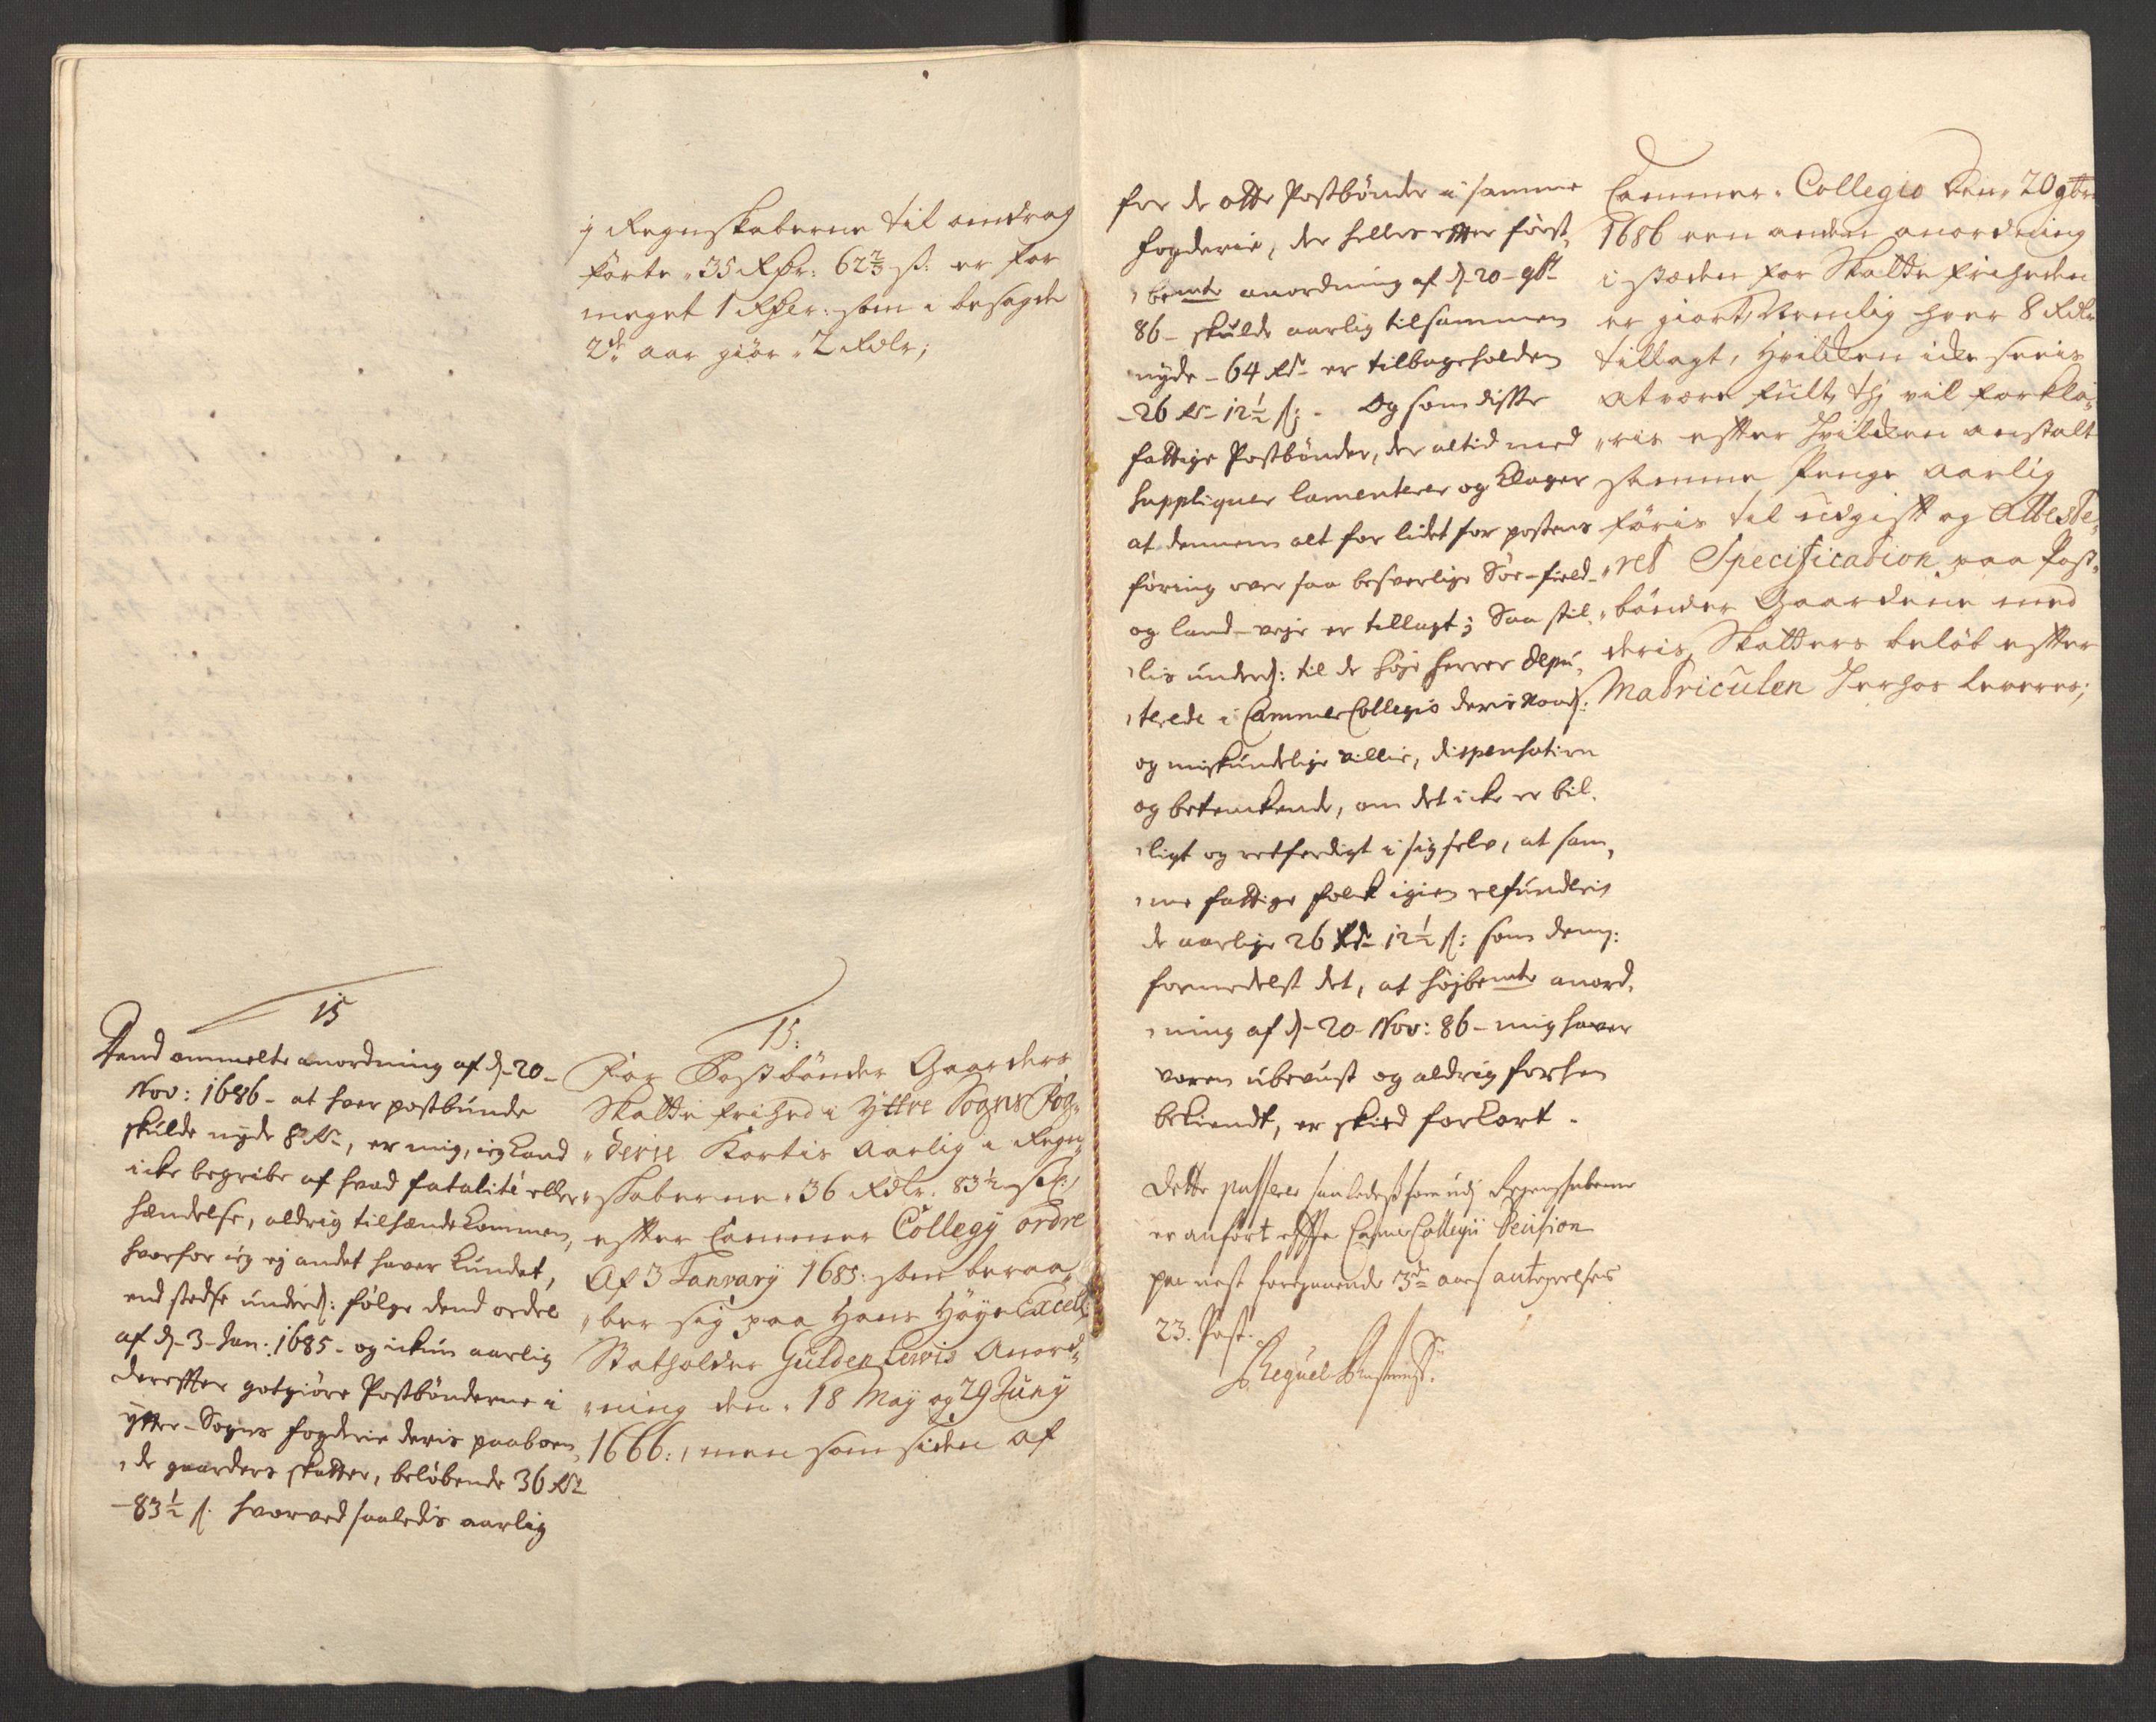 j Regnskaberne til omdrag
førte 35 Rdr: 62 2/3 s: er for
meget 1 Rdlr: som i besagde
2de aar giör 2 Rdlr;
15
Dend ommelte anordning af d. 20
Nov: 1686 - at hver postbunde
skulde nyde 8 Rdr, er mig, ieg kand
icke begribe af hvad fatalité eller
hændelse, aldrig tilhænde kommen,
hvorfor ieg ej andet haver kundet,
end stedse underd: følge dend ordre
af d. 3 Jan: 1685 - og ickun aarlig
dereffter gotgiöre Postbönderne i
ytter-Sogns fogderie deris paaboen,
,de gaarders skatter, beløbende 36 Rdr
- 83 1/2 s. hvorved saaledis aarlig
15:
For Postbönder Gaarders
Skatte frihed i Yttre Sogns Fog,,
,,derie Kortis Aarlig i Regn,,
,,skaberne 36 Rdlr. 83 1/2 sk:,
effter Cammer Collegy ordre
Af 3 January 1685: som beraa,,
,,ber sig paa Hans Höye Excell:
Statholder Güldenlewis Anord,,
,,ning den 18 May og 29 Juny
1666:, men som siden af
for de otte Postbönder i samme
fogderie, der hellers effter först,
,bemte anordning af d. 20 9br
86 - skulde aarlig tilsammen
nyde - 64 Rdr er tilbageholden
- 26 Rdr 12 1/2 s: - Og som disse
fattige Postbönder, der altid med
suppliquer lamenterer og klager
at dennem alt for lidet for postens
föring over saa besverlige Söe-field-
og land-veje er tillagt; Saa stil,
,lis underd: til de höje herrer Depu,
,terede i Cammer Collegio deris naad:
og miskundelige villie, dispensation
og betenkende, om det icke er bil,
,ligt og retferdigt i sig selv, at sam,
,me fattige folk igien refunderis
de aarlige 26 Rdr 12 1/2 s: som dem:
formedelst det, at höjbemte anord,
,ning af d. 20 Nov: 86 - mig haver
varen ubevust og aldrig forhen
bekiendt, er skied forkort.
Dette passerer saaledes som udj Regenskaberne
er anført effter Cammer Collegii Decision
paa nest foregaaende 3de aars antegnelses
23. Post.
Cammer Collegio den 20 9br
1686 een anden anordning
i steden for Skatte friheden
er giort, Nemlig hver 8 Rdlr
tillagt, Hvilken icke sees
at være fult, thj vil forkla,,
,,ris effter hvilken anstalt
samme Penge aarlig
föris til udgifft og Atteste,,
,,ret Specification paa Post,,
,,bönder Gaardene med
deris Skatters beløb effter
Matriculen herhos leveres;